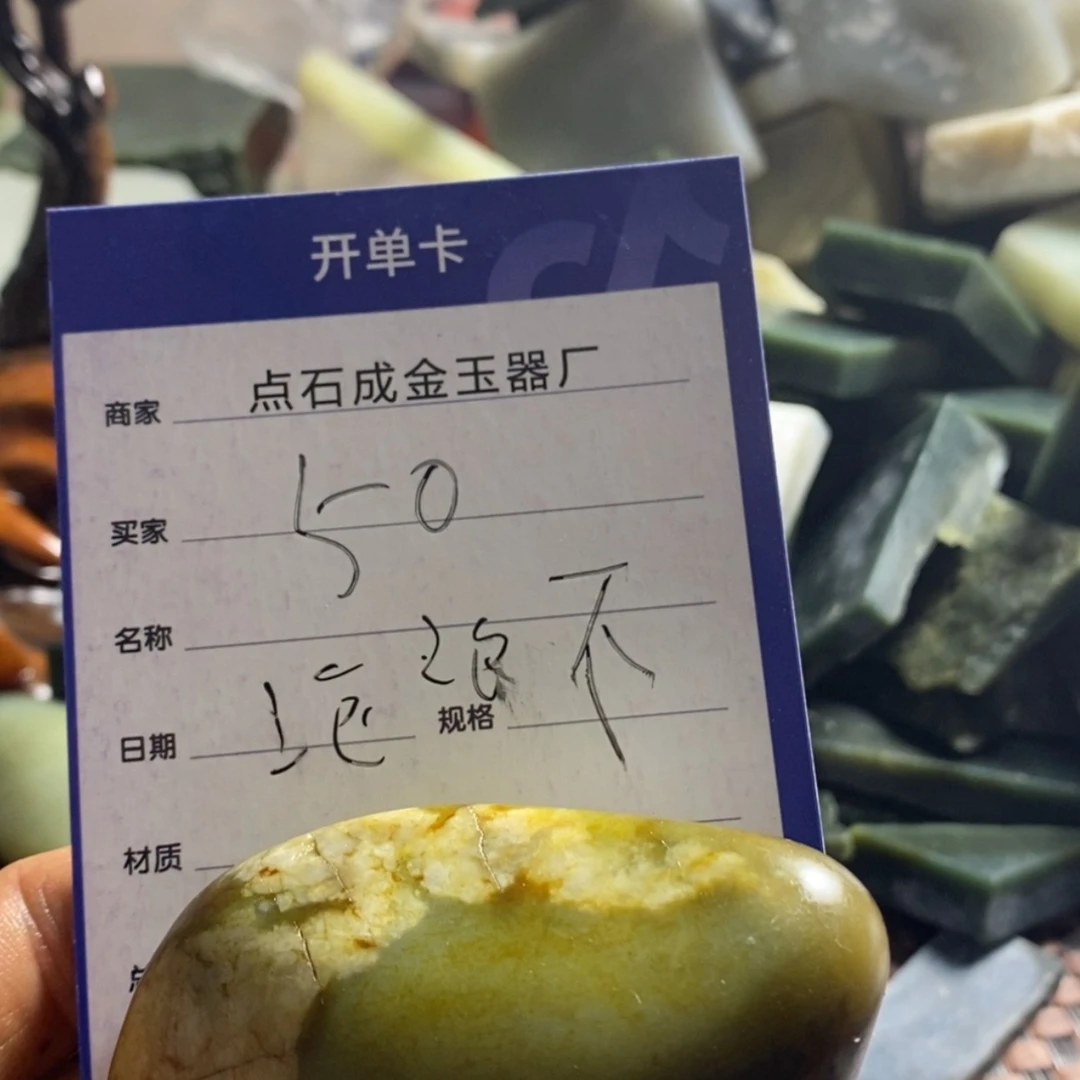 开单卡
商家 点石成金玉器厂
买家 50
名称
日期 规格
材质